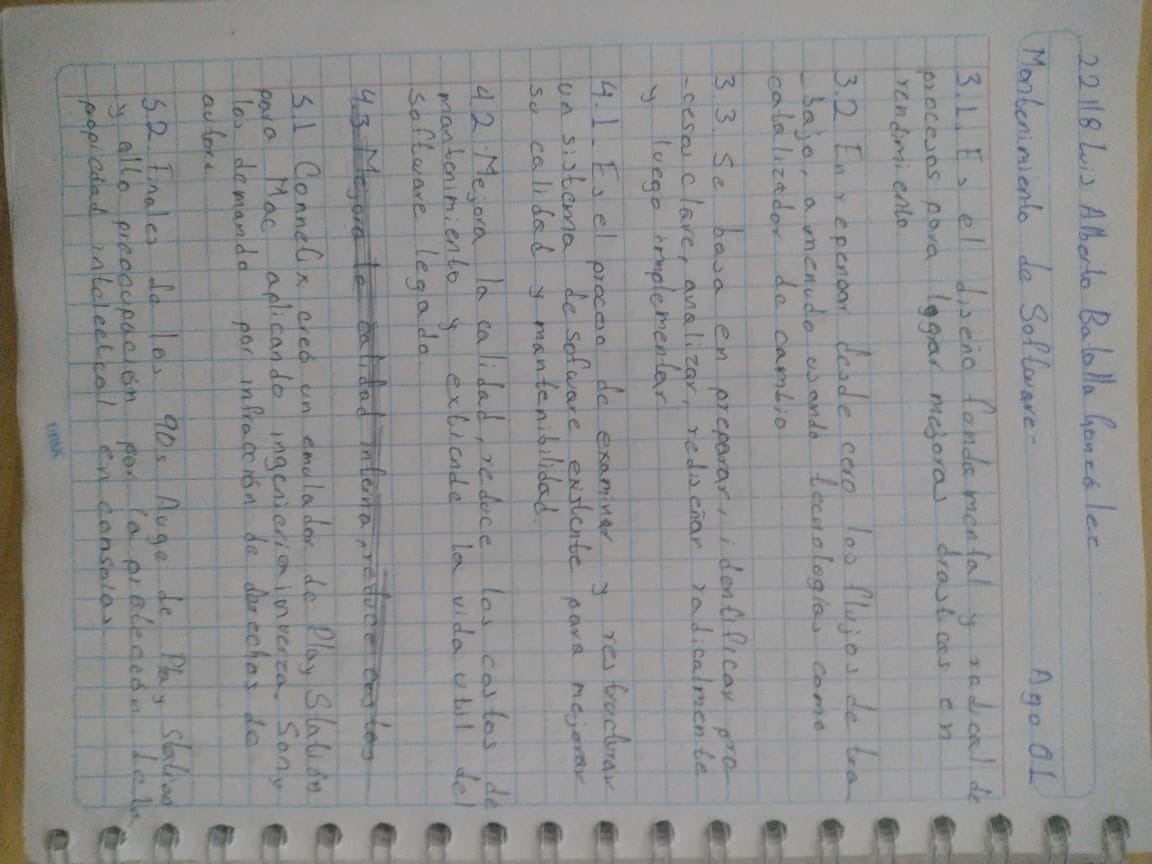 22118 Luis Alberto Batalla González
Mantenimiento de Software-
Ago 01
3.1. Es el diseño fundamental y radical de
procesos para lograr mejoras drasticas en
rendimiento.
3.2 En repensar desde cero los flujos de tra
-bajo, a menudo usando tecnologías como
catalizador de cambio
3.3 Se basa en preparar, identificar pro
-cesos clave, analizar, rediseñar radicalmente
y luego implementar
4.1. Es el proceso de examinar y restructurar
un sistema de sofware existente para mejorar
su calidad y mantenibilidad.
4.2. Mejora la calidad, reduce los costos de
mantenimiento y extiende la vida util del
software legado.
4.3 Mejora la calidad interna, reduce costos
5.1 Connetix creó un emulador de Play Statión
para Mac aplicando ingenieria inverza. Sony
los demando por infracción de derechos de
autore
5.2 Finales de los 90s Auge de Play Station
y alto preocupación por la protección de la
propiedad intelectual en consolas